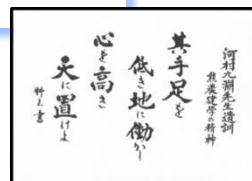 河村九淵先生遺訓
熊農建学の精神
其手足を
低き地に働かし
心を高き
天に置けよ